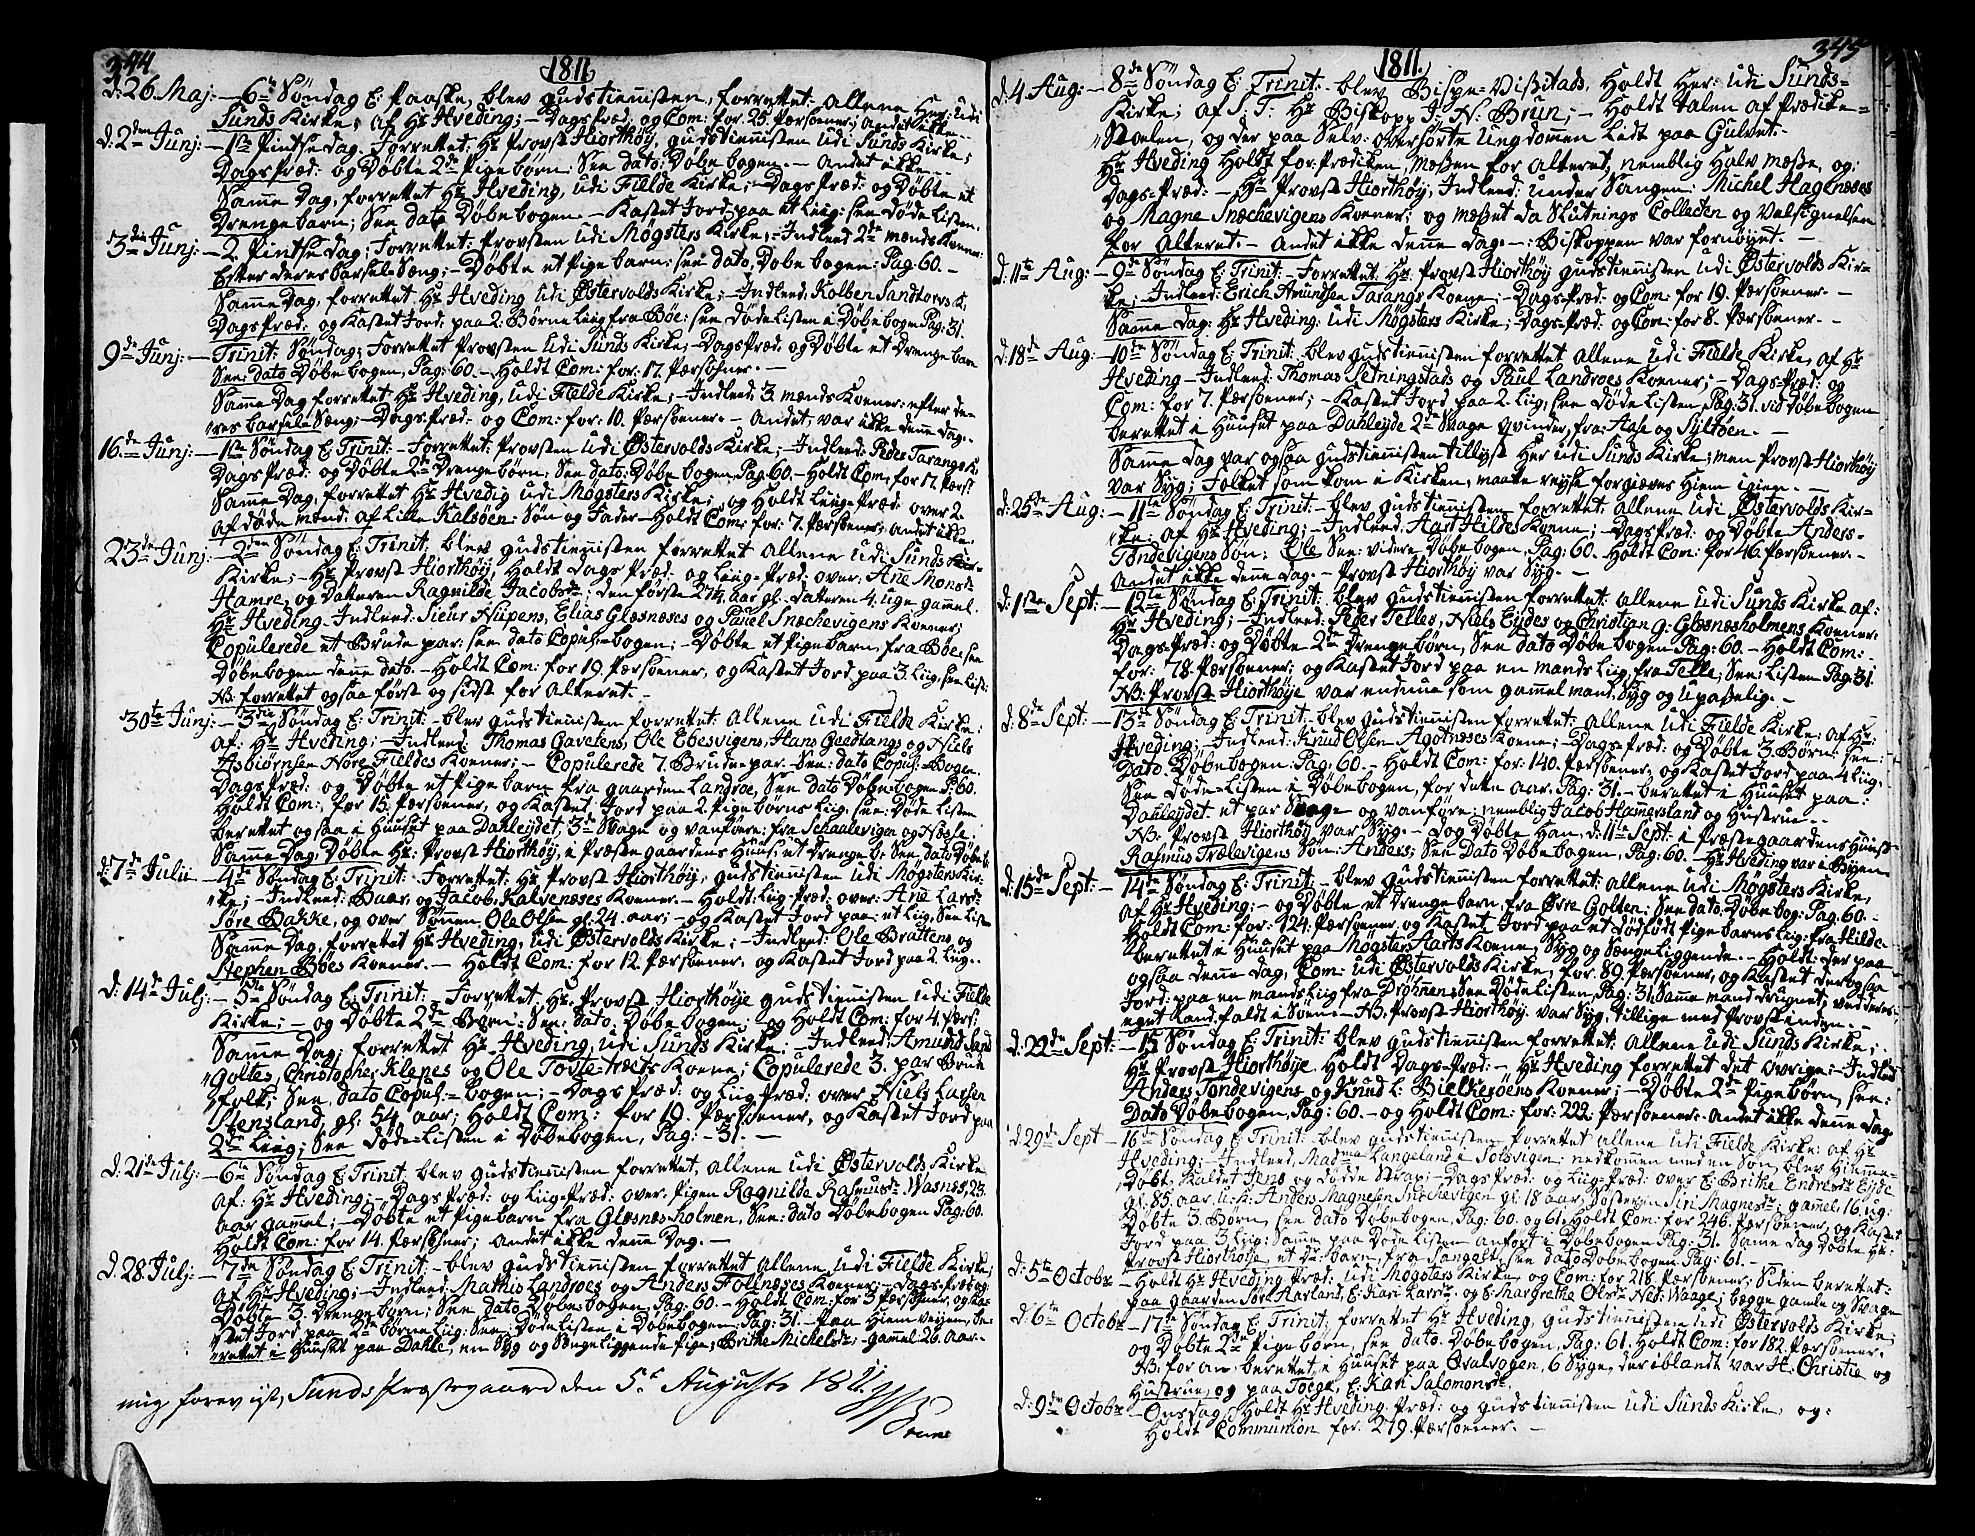 344
1811
d: 26. Maj: – 6te Søndag E: Paaske, blev Gudstienisten, forrettet: allene Her: udi
Sunds Kirke; af Hr: Hveding; – Dags Præd: og Com: for 25. Pærsoener; Andet ikke. –
d: 2den Junj: – 1ste Pintse Dag. Forrettet: Hr Provst Hiorthøy, gudstienisten udi Sunds Kirke;
Dags Præd: og Døbte 2de Pigebørn: See dato: Døbe bogen. – Andet ikke. –
Samme Dag, forrettet Hr: Hveding, udi Fielde Kirke; – Dags Præd: og Døbte et
Drengebarn; See dato Døbebogen. – Kastet Jord paa et Liig: see Døde Listen.
3die Junj: – 2. Pintse dag; Forrettet: Provsten udi Møgsters Kirke; – Indleed 2de mænds Koener:
Efter deres barsele Sæng; – Døbte et Pige barn: see dato, Døbe bogen: Pag: 60. –
Samme Dag, forrettet Hr: Hveding udi Østervolds Kirke; – Indleed: Kolben Sandtorvs K.
Dags Præd: og Kastet Jord: paa 2: Børne Liig fra Bøe: see Døde Listen i Døbebogen Pag: 31.
9de Junj: – Trinit: Søndag; Forrettet Provsten udi Sunds Kirke; – Dags Præd: og Døbte et Drenge barn
See: dato Døbebogen, Pag: 60. – Holdt Com: for: 17. Pærsoener. –
Samme Dag forrettet Hr: Hveding, udi Fielde Kirke; – Indleed; 3 mænds Koener: efter de=
res barsele Sæng; – Dags Præd: og Com: for: 10. Pærsoener. – Andet, var ikke dene dag. –
16de Junj: – 1ste Søndag E: Trinit: – Forrettet: Provsten udi Østervolds Kirke; – Indleed: Peder Tarangs K.
Dags Præd: og Døbte 2de Drengebørn; See dato: Døbe bogen, Pag: 60. – Holdt Com, for 17. Pærs:
Samme Dag, forrettet Hr: Hvedig udi Møgsters Kirke; og Holdt Liig=Præd: over 2
af døde mænd: af Lille Kalsøen: Søn og Fader – Holdt Com: for: 7. Pærsoener; Andet ikke.
23de Junj: – 2den Søndag E: Trinit: blev gudstienisten forrettet allene udi Sunds Kir=
Kirke; – Hr: Provst Hiorthøy, Holdt Dags Præd: og Liig=Præd: over: Ane Monsdr
Hamre, og Datteren Ragnilde Jacobsdr: den første 27½. aar gl. datteren 4. uge gammel.
Hr: Hveding – Indleed: Siehr Nupens, Elias Glesnæses og Pouel Snæchevigens Koener;
Copulerede et Brude par: see dato Copul=bogen; – Døbte et Pigebarn, fra Bøe: see
Døbebogen dene dato. – Holdt Com: for 19. Pærsoener, og Kastet Jord paa 3. Liig, see List:
NB: forrettet ogsaa først og sidst for Alteret. –
30te Junj: – 3die Søndag E: Trinit: – blev gudstienisten forrettet: allene udi Fielde Kirke:
af: Hr: Hveding; – Indleed: Thomas Gavetens, Ole Ebesvigens, Hans Geedtangs og Niels
Asbiørnsen Nore Fieldes Koener; – Copulerede 7. Brude=par. See: dato Copul=Bogen.
Dags Præd: og Døbte et Pige barn fra gaarden Landroe, See dato Døbe=bogen P: 60.
Holdt Com: for 15. Pærsoener, og Kastet Jord paa 2 Pigebørns Liig, see: Døde Listen
berettet ogsaa i Huuset paa Dahleydet, 3de Svage og vanføere: fra Schaalevigen og Næse.
Samme Dag: Døbte Hr: Provst Hiorthøy, i Præste gaardens Huus, et Drenge b: See, dato Døbeb:
d: 7de Julii – 4de Søndag E: Trinit: Forrettet: Hr: Provst Hiorthøy, gudstienisten udi Møgsters Kir=
ke; – Indleed: Baar, og Jacob Kalvenæses Koener. – Holdt: Liig=Præd: over: Ane Larsdr
Søre Bakke, og over Sønen Ole Olsen gl. 24. aar; – og Kastet Jord paa: et Liig, See Listen
Samme Dag, forrettet Hr: Hveding, udi Østervolds Kirke; – Indleed: Ole Brattens, og
Stephen Bøes Koener. – Holdt Com: for 12. Pærsoener, og Kastet Jord paa 2. Liig. –
d: 14de Julj: – 5te Søndag E: Trinit: – Forrettet, Hr: Provst Hiorthøye gudstienisten udi Fielde
Kirke; – og Døbte 2de Børn: See: dato: Døbebogen; – og Holdt Com: for 4. Pærs:
Samme Dag, forrettet Hr: Hveding, udi Sunds Kirke; – Indleed: Amund Sand
Goltes, Christopher Klepes og Ole Tofte=træts Koene; Copulerede 3. par Brude
folk: See, dato Copul=bogen; – Dags Præd: og Liig Præd: over Niels Larsen
Stensland, gl: 54. aar; Holdt Com: for 19. Pærsoener, og Kastet Jord paa
2de Liig; See Døde=Listen i Døbebogen, Pag: – 31. –
d: 21de Julj: – 6te Søndag E: Trinit, blev gudstienisten forrettet, allene udi Østervolds Kirke
af: Hr: Hveding; – Dags Præd: og Liig=Præd: over: Pigen Ragnilde Rasmusdr Wasnes, 23.
aar gamel; – Døbte et Pigebarn fra Glesnæsholmen, See: dato Døbebogen Pag: 60.
Holdt Com: for 14. Pærsoener; Andet ikke dene Dag. –
d: 28. Julj: – 7de Søndag E: Trinit: – blev gudstienisten forrettet allene udi Fielde Kirke,
af Hr: Hveding; – Indleed: Mathis Landroes og Anders Follnæses Koener; – Dags=Præd: og
Døbte 3. Drengebørn; See dato Døbe=bogen, Pag: 60. – Holdt Com: for 3 Pærsoener, og Ka=
stet Jord, paa 2de børne Liig: See: Døde Listen i Døbebogen: Pag: 31. – Paa Hiem veyen, be=
rettet i Huuset paa Dahle, en Syg og Sængeliggende Pige; Brithe Michelsdr, gamel 26. aar. –
mig forevist, Sunds Præstegaard den 5te Augusts 1811. JNBrun
345
1811.
d: 4. Aug: – 8de Søndag E: Trinit: – blev Bispe=Visitads, Holdt Her: udi Sunds=
Kirke; af S. T: Hr Biskopp J: N: Brun; – Holdt talen af Prædike=
Stoelen, og der paa Selv: overhørte ungdommen Ledt paa Gulvet. –
Hr: Hveding Holdt for Prædiken, Mæssen for Alteret, nemblig Halv mæsse, og:
Dags=Præd: – Hr: Provst Hiorthøy, Indleed: under Sangen: Michel Hagenæses
og Magne Snæchevigens Koener; og mæsset da Slutnings Collecten og Velsignelsen
for Alteret. – Andet ikke dene dag. – : Biskoppen var fornøyet. –
d: 11te Aug: – 9de Søndag E: Trinit – Forrettet, Hr: Provst Hiorthøy gudstienisten udi Østervolds Kir=
ke; – Indleed: Erich Amundsen Tarangs Koene; – Dags=Præd: og Com: for 19. Pærsoener. –
Samme Dag: Hr: Hveding: udi Møgsters Kirke; Dags=Præd: og Com: for 8. Pærsoener. –
d: 18de Aug: – 10de Søndag E: Trinit: blev gudstienisten forrettet allene udi Fielde Kirke, af Hr
Hveding – Indleed: Thomas Letningstads og Paul Landroes Koener; – Dags=Præd: og
Com: for 7. Pærsoener; – Kastet Jord paa 2. Liig, see Døde Listen, Pag: 31. vid: Døbebogen
berettet i Huuset paa Dahleyde 2de Svage Qvinder, fra: Aase og Syltøen. –
Samme Dag var ogsaa gudstienisten tillyst Her udi Sunds Kirke; men Provst Hiorthøy
var Syg; Folket som kom i Kirken, maatte reyse forgiæves Hiem igien. –
d: 25de Aug: – 11te Søndag E: Trinit: – blev gudstienisten forrettet: allene udi Østervolds Kir=
ke: af Hr: Hveding; – Indleed: Aart Hildes Koene; – Dags Præd: og Døbte Anders=
Tøndevigens Søn: Ole See: videre Døbebogen, Pag: 60. – Holdt Com: for 46. Pærsoener. –
Andet ikke dene Dag. – Provst Hiorthøy var Syg. –
d: 1ste Sept: – 12te Søndag E: Trinit: blev gudstienisten forrettet: allene udi Sunds Kirke af:
Hr: Hveding; – Indleed: Peder Telles, Niels Eydes og Christian G: Glæsnæsholmens Koener:
Dags=Præd: og Døbte 2de Drengebørn, See dato Døbe bogen Pag: 60. – Holdt Com:
for: 78. Pærsoener; og Kastet Jord paa en mands Liig, fra Telle; See: Listen Pag: 31.
NB: Provst Hiorthøye var endnu som gammel mand, Syg og upasselig. –
d: 8de Sept: – 13de Søndag E: Trinit: – blev gudstienisten forrettet: allene udi Fielde Kirke: af Hr:
Hveding; – Indleed: Knud Olsen Agotnæses Koene; – Dags=Præd: og Døbte 3. Børn: see:
Dato. Døbebogen: Pag: 60. – Holdt Com: for: 140. Pærsoener; og Kastet Jord paa 4 Liig,
See Døde=Listen i Døbebogen, for dette aar. Pag: 31. – berettet i Huuset paa:
Dahleydet. et par Svage og vanføre: nemblig Jacob Hammersland og Hustrue. –
NB: Provst Hiorthøy var Syg. – Dog Døbte Han, d: 11te Sept: i Præstegaardens Huus:
Rasmus Trælevigens Søn: Anders; See Dato Døbebogen, Pag: 60. – Hr: Hveding var i Byen
d: 15de Sept: – 14de Søndag E: Trinit: – blev gudstienisten forrettet: allene udi Møgsters Kirke,
af Hr: Hveding; – og Døbte et Drengebarn, fra Øvre Golten: See dato Døbebog: Pag: 60. –
Holdt Com: for: 124. Pærsoener, og Kastet Jord paa et Dødfødt Pigebarns Liig: fra Hilde=
berettet i Huuset paa Møgster Aarts Koene, Syg og Sængeliggende. – Holdt der paa
ogsaa dene Dag, Com: udi Østervolds Kirke, for 89. Pærsoener, og Kastet der ogsaa
Jord: paa en mands Liig fra Drønen: See Døde Listen, Pag: 31. Samme mand drugnet, ved deres
eget Land, faldt i Søen. – NB: Provst Hiorthøy. var Syg, tillige med Provstinden. –
d: 22de Sept: – 15 Søndag E: Trinit: blev gudstienisten forrettet: allene udi Sunds Kirke;
Hr Provst Hiorthøye. Holdt Dags=Præd: – Hr: Hveding forrettet det Øvrige; – Indleed
Anders Tøndevigens og Knud L: Bielkerøens Koener; – Døbte 2de Pigebørn, see:
Dato Døbebogen, Pag: 60. – og Holdt Com: for: 222. Pærsoener: Andet ikke dene dag
d: 29de Sept – 16de Søndag E: Trinit: blev gudstienisten forrettet allene udi Fielde Kirke: af Hr
Hveding; – Indleed, Madme Langeland i Solsvigen; nedkommen med en Søn, blev Hiemme=
Døbt. Kaldet Jens og Dødde Strax; – Dags Præd: og Liig=Præd: over E: Brithe Endresdr Eyde
gl. 85. aar, u: K: Anders Magnesen Snechevigen gl. 18 aar, Søsteren Siri Magnesdr, gamel, 16. ug:
Døbte 3. Børn, see dato Døbebogen, Pag: 60. og 61. Holdt Com: for 246. Pærsoener, og Kastet
Jord paa 3. Liig: Samme paa Døde Listen anført i Døbebogen Pag: 31. Same Dag Døbte Hr:
Provst Hiorthøye, et Dr: barn, fra Sangelt, see dato Døbebogen Pag: 61. –
d: 5te Octobr – Holdt Hr: Hveding Præd: udi Møgsters Kirke, og Com: for 218. Pærsoener, Siden berettet:
paa gaarden Søre Haarland, E: Kari Larsdr og E: Margrethe Olsdr Ned: Waage; begge gamle og Svage
d: 6te Octobr – 17de Søndag E: Trinit; forrettet Hr: Hveding, gudstienisten udi Østervolds Kirke;
og Døbte 2de Pigebørn, see dato. Døbebogen, Pag: 61. Holdt Com: for 182. Pærsoener.
NB: for an, berettet, i Huuset paa Qvalvogen, 6 Syge, der iblandt var H. Christie og
Hustrue, og paa Toege, E: Kari Salomonsdr.
d: 9de Octobr – Onsdag, Holdt Hr: Hveding, Præd: og gudstienisten udi Sunds Kirke, og:
Holdt Communion for: 279. Pærsoener. –